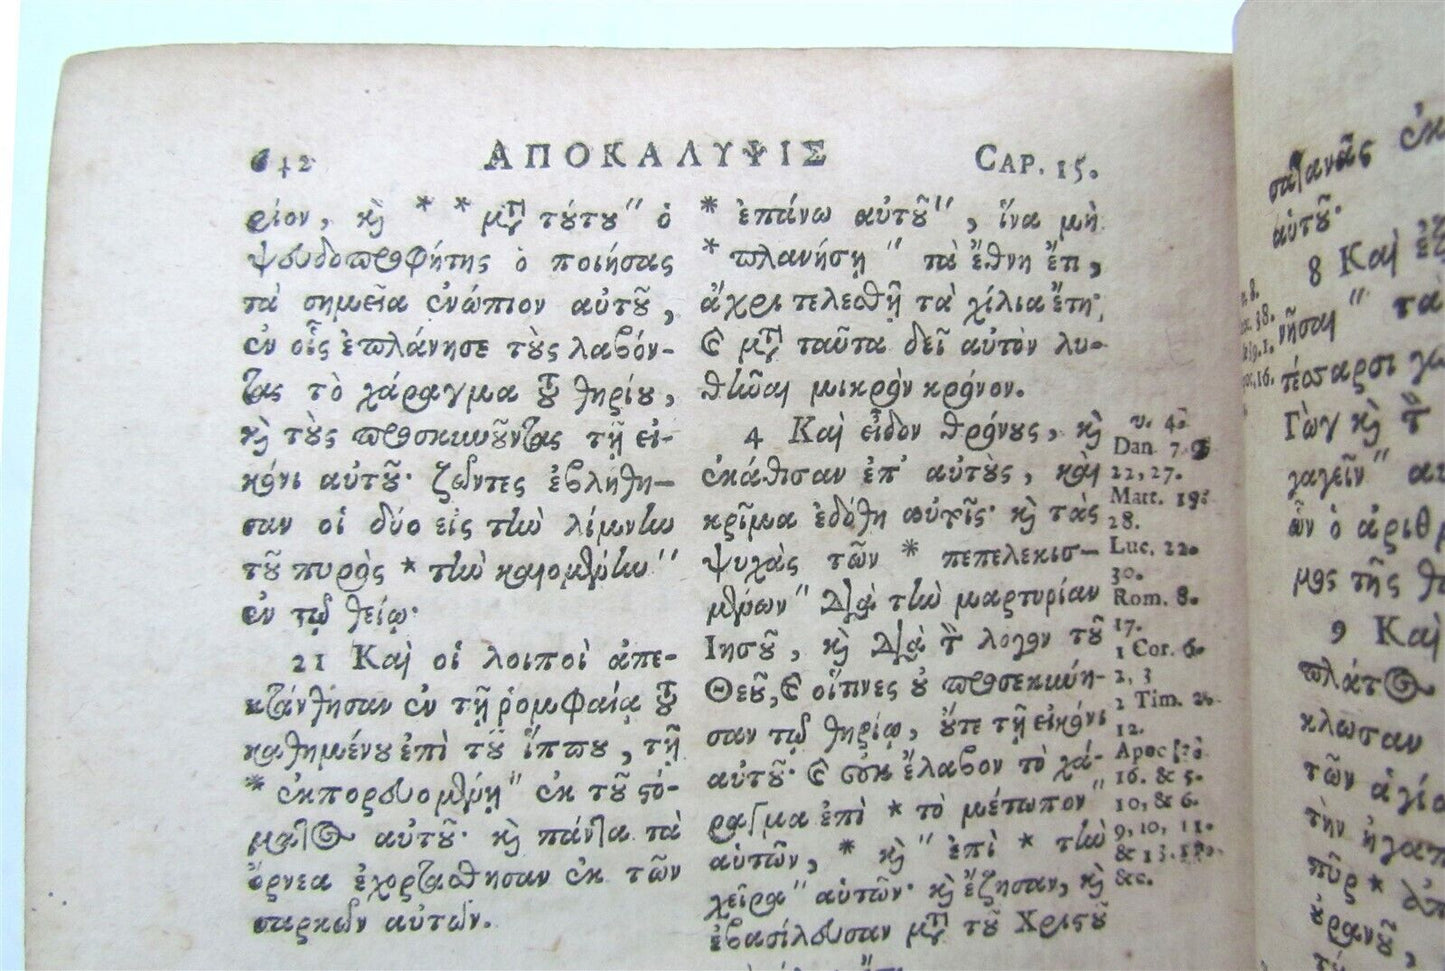 642 ΑΠΟΚΑΛΥΨΙΣ CAP. 15.
ρίον, κὴ * * μτ̃ τύτυ" ὁ
ψευδοπροφήτης ὁ ποιήσας
τὰ σημεῖα ἐνώπιον αὐτοῦ,
ἐν οἷς ἐπλάνησε τοὺς λαβόν-
τας τὸ χάραγμα τοῦ θηρίου,
καὶ τοὺς προσκυνοῦντας τῇ εἰ-
κόνι αὐτοῦ· ζῶντες ἐβλήθη-
σαν οἱ δύο εἰς τὴν λίμνην
τοῦ πυρὸς * τὴν καιομένην"
ἐν τῷ θείῳ·
21 Καὶ οἱ λοιποὶ ἀπε-
κτάνθησαν ἐν τῇ ῥομφαίᾳ τοῦ
καθημένου ἐπὶ τοῦ ἵππου, τῇ
* ἐκπορευομένῃ" ἐκ τοῦ στό-
ματος αὐτοῦ· καὶ πάντα τὰ
ὄρνεα ἐχορτάσθησαν ἐκ τῶν
σαρκῶν αὐτῶν.
* ἐπάνω αὐτοῦ", ἵνα μὴ
* πλανήσῃ" τὰ ἔθνη ἔτι,
ἄχρι τελεσθῇ τὰ χίλια ἔτη·
καὶ μετὰ ταῦτα δεῖ αὐτὸν λυ-
θῆναι μικρὸν χρόνον.
4 Καὶ εἶδον θρόνους, καὶ
ἐκάθισαν ἐπ' αὐτοὺς, καὶ
κρῖμα ἐδόθη αὐτοῖς· καὶ τὰς
ψυχὰς τῶν * πεπελεκισ-
μένων" διὰ τὴν μαρτυρίαν
Ἰησοῦ, καὶ διὰ τὸν λόγον τοῦ
Θεοῦ, καὶ οἵτινες οὐ προσεκύνη-
σαν τῷ θηρίῳ, οὔτε τῇ εἰκόνι
αὐτοῦ· καὶ οὐκ ἔλαβον τὸ χά-
ραγμα ἐπὶ * τὸ μέτωπον"
αὑτῶν, * καὶ" ἐπὶ * τὴν
χεῖρα" αὑτῶν· καὶ ἔζησαν, καὶ
ἐβασίλευσαν μετὰ τοῦ Χριστοῦ
v. 4.
Dan. 7. 9
22, 27.
Matt. 19.
28.
Luc. 22.
30.
Rom. 8.
17.
1 Cor. 6.
2, 3
2 Tim. 2.
12.
Apoc
16. & 5.
10, & 6.
9, 10, 11.
& 13.
&c.
σατανᾶς ἐκ
αὐτοῦ·
8 Καὶ ἐξ
νῆσαι" τὰ
τέσσαρσι γω
Γὼγ καὶ τὸν
γαγεῖν" αὐ
ὧν ὁ ἀριθμ
μος τῆς θ
9 Καὶ
πλάτος
κλωσαν
τῶν ἁγίω
τὴν ἠγαπ
πῦρ * ἀπ
οὐρανοῦ,